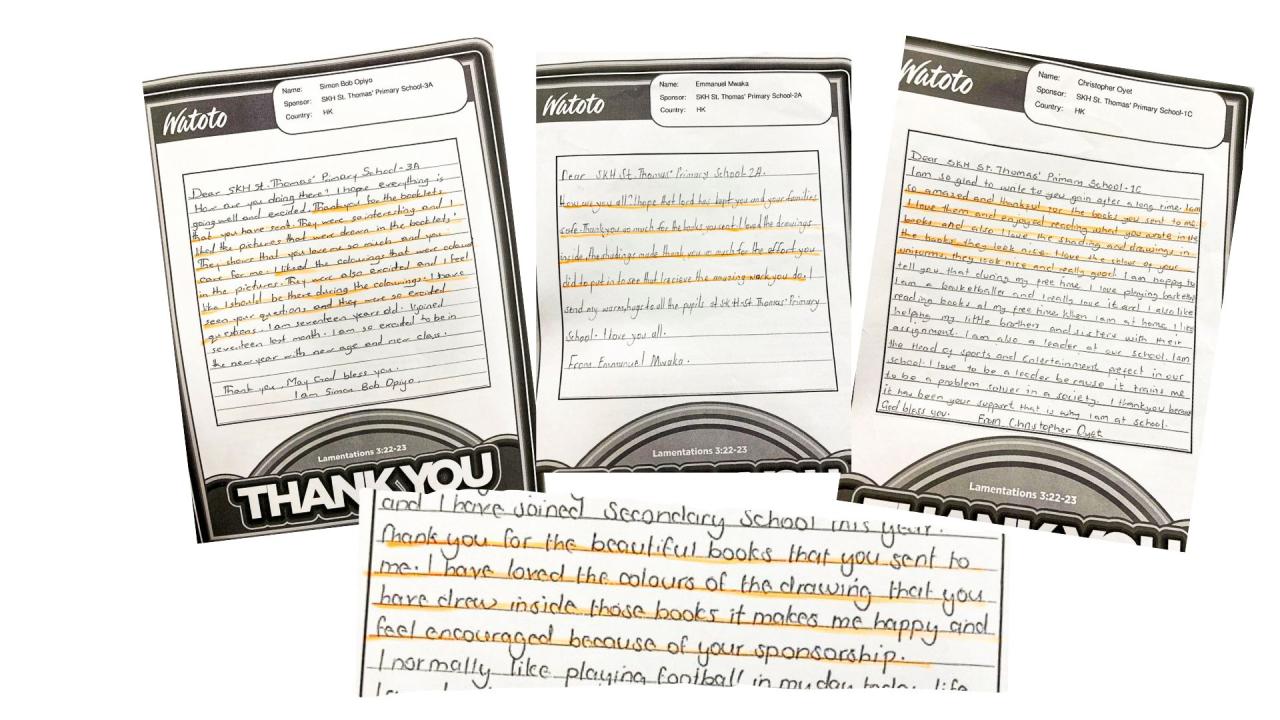 Watoto
Name: Simon Bob Opiyo
Sponsor: SKH St. Thomas' Primary School-3A
Country: HK
Dear SKH St. Thomas' Primary School-3A
How are you doing there? I hope everything is
going well and excited. Thank you for the booklets
that you have sent. They were so interesting and I
liked the pictures that were drawn in the booklets.
They show that you love me so much and you
care for me. I liked the colourings that were colour
in the pictures. They were also excited and I feel
like I should be there during the colourings. I have
seen your questions and they were so excited
questions. I am seventeen years old. I joined
seventeen last month. I am so excited to be in
the new year with new age and new class.
Thank you. May God bless you.
I am Simon Bob Opiyo.
Lamentations 3:22-23
THANK YOU
Watoto
Name: Emmanuel Mwaka
Sponsor: SKH St. Thomas' Primary School-2A
Country: HK
Dear SKH St. Thomas' Primary School 2A.
How are you all? I hope that lord has kept you and your families
safe. Thank you so much for the books you sent. I loved the drawings
inside, the shadings made thank you so much for the effort you
did to put in to see that I recieve the amazing work you do. I
send my warm hugs to all the pupils of SKH St. Thomas' Primary
School. I love you all.
From Emmanuel Mwaka.
Lamentations 3:22-23
Watoto
Name: Christopher Oyet
Sponsor: SKH St. Thomas' Primary School-1C
Country: HK
Dear SKH St. Thomas' Primary School-1C
I am so glad to write to you gain after a long time. I am
so amazed and thankful for the books you sent to me.
I love them and enjoyed reading what you wrote in the
books and also I love the shading and drawings in
the books, they look nice. I love the colour of your
uniforms, they look nice and really good. I am happy to
tell you that during my free time. I love playing basketball
I am a basketballer and I really love it and I also like
reading books at my free time. When I am at home I like
helping my little brothers and sisters with their
assignment. I am also a leader at our school. I am
the Head of sports and Entertainment prefect in our
school. I love to be a leader because it trains me
to be a problem solver in a society. I thank you because
it has been your support that is why I am at school.
God bless you. From Christopher Oyet
Lamentations 3:22-23
and I have joined Secondary School this year.
Thank you for the beautiful books that you sent to
me. I have loved the colours of the drawing that you
have drew inside those books it makes me happy and
feel encouraged because of your sponsorship.
I normally like playing football in my day today life